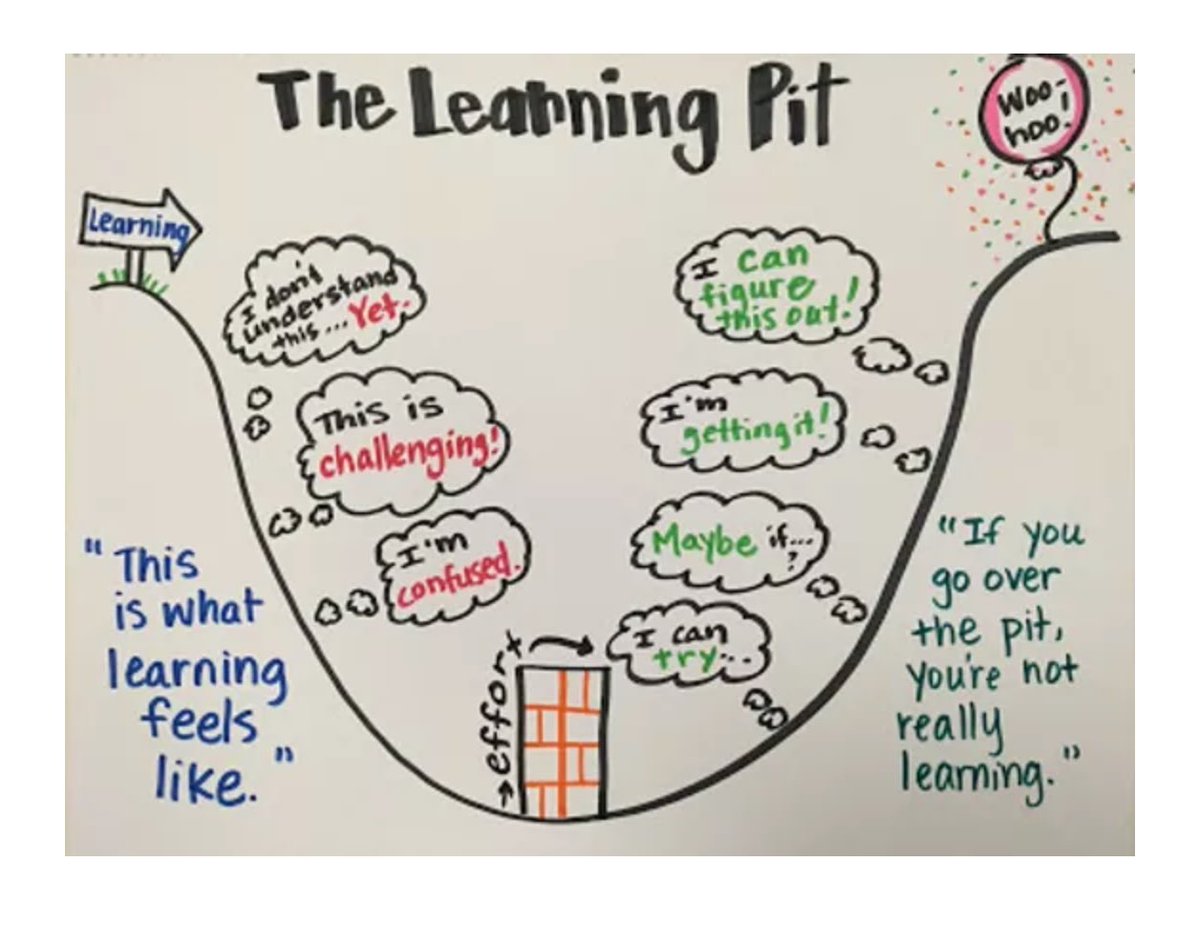 The Learning Pit
Woo-
hoo!
Learning
I don't
understand
this... Yet.
This is
challenging!
I'm
confused.
effort
I can
try...
Maybe if...
?
I'm
getting it!
I can
figure
this out!
"This
is what
learning
feels
like."
"If you
go over
the pit,
you're not
really
learning."